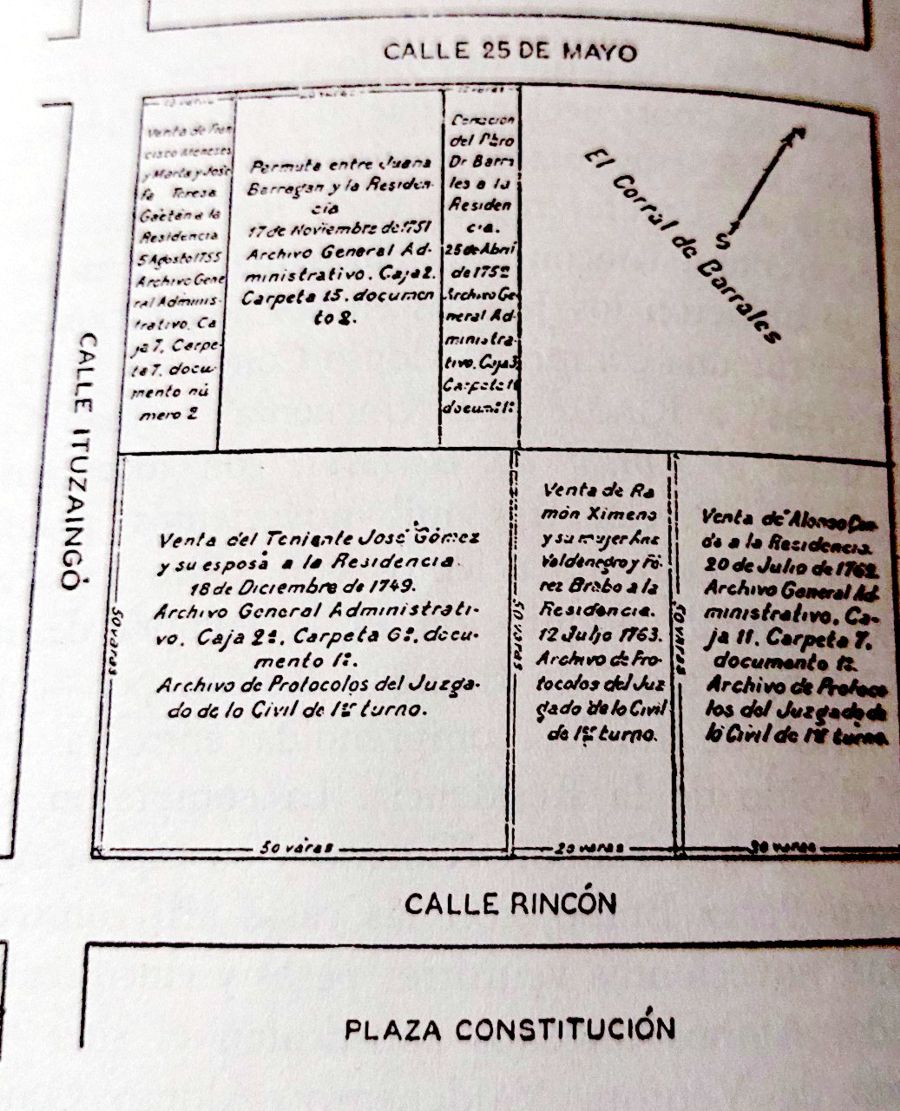 CALLE 25 DE MAYO
varas
varas
varas
Venta de Fran
cisco Meneses
y María y Jose
fa Teresa
Gaetán a la
Residencia
5 Agosto 1755
Archivo Gene
ral Adminis-
trativo. Ca
ja 7. Carpe-
ta 7. docu-
mento nú
mero 2
Permuta entre Juana
Barragan y la Residen-
cia
17 de Noviembre de 1751
Archivo General Ad-
ministrativo. Caja 2.
Carpeta 15. documen
to 2.
del Pbro
Dr Barra
les a la
Residen
cia.
25 de Abril
de
Archivo Ge
neral Ad-
ministra-
tivo. Caja 3
Carpeta
docum.
El Corral de Barrales
S
CALLE ITUZAINGÓ
Venta del Teniente José Gómez
y su esposa a la Residencia.
18 de Diciembre de 1749.
Archivo General Administrati-
vo. Caja 2ª. Carpeta 6ª. docu-
mento 1º.
Archivo de Protocolos del Juzga-
do de lo Civil de 1er turno.
50 varas
50 varas
Venta de Ra
món Ximeno
y su mujer Ana
Valdenegro y Pé-
rez Brabo a la
Residencia.
12 Julio 1763.
Archivo de Pro-
tocolos del Juz
gado de lo Civil
de 1er turno.
50 varas
20 varas
Venta de Alonso
a la Residencia.
20 de Julio de 1762
Archivo General Ad-
ministrativo. Ca-
ja 11. Carpeta 7.
documento 12
Archivo de Protoco
los del Juzgado de
lo Civil de 1er turno.
50 varas
30 varas
CALLE RINCÓN
PLAZA CONSTITUCIÓN